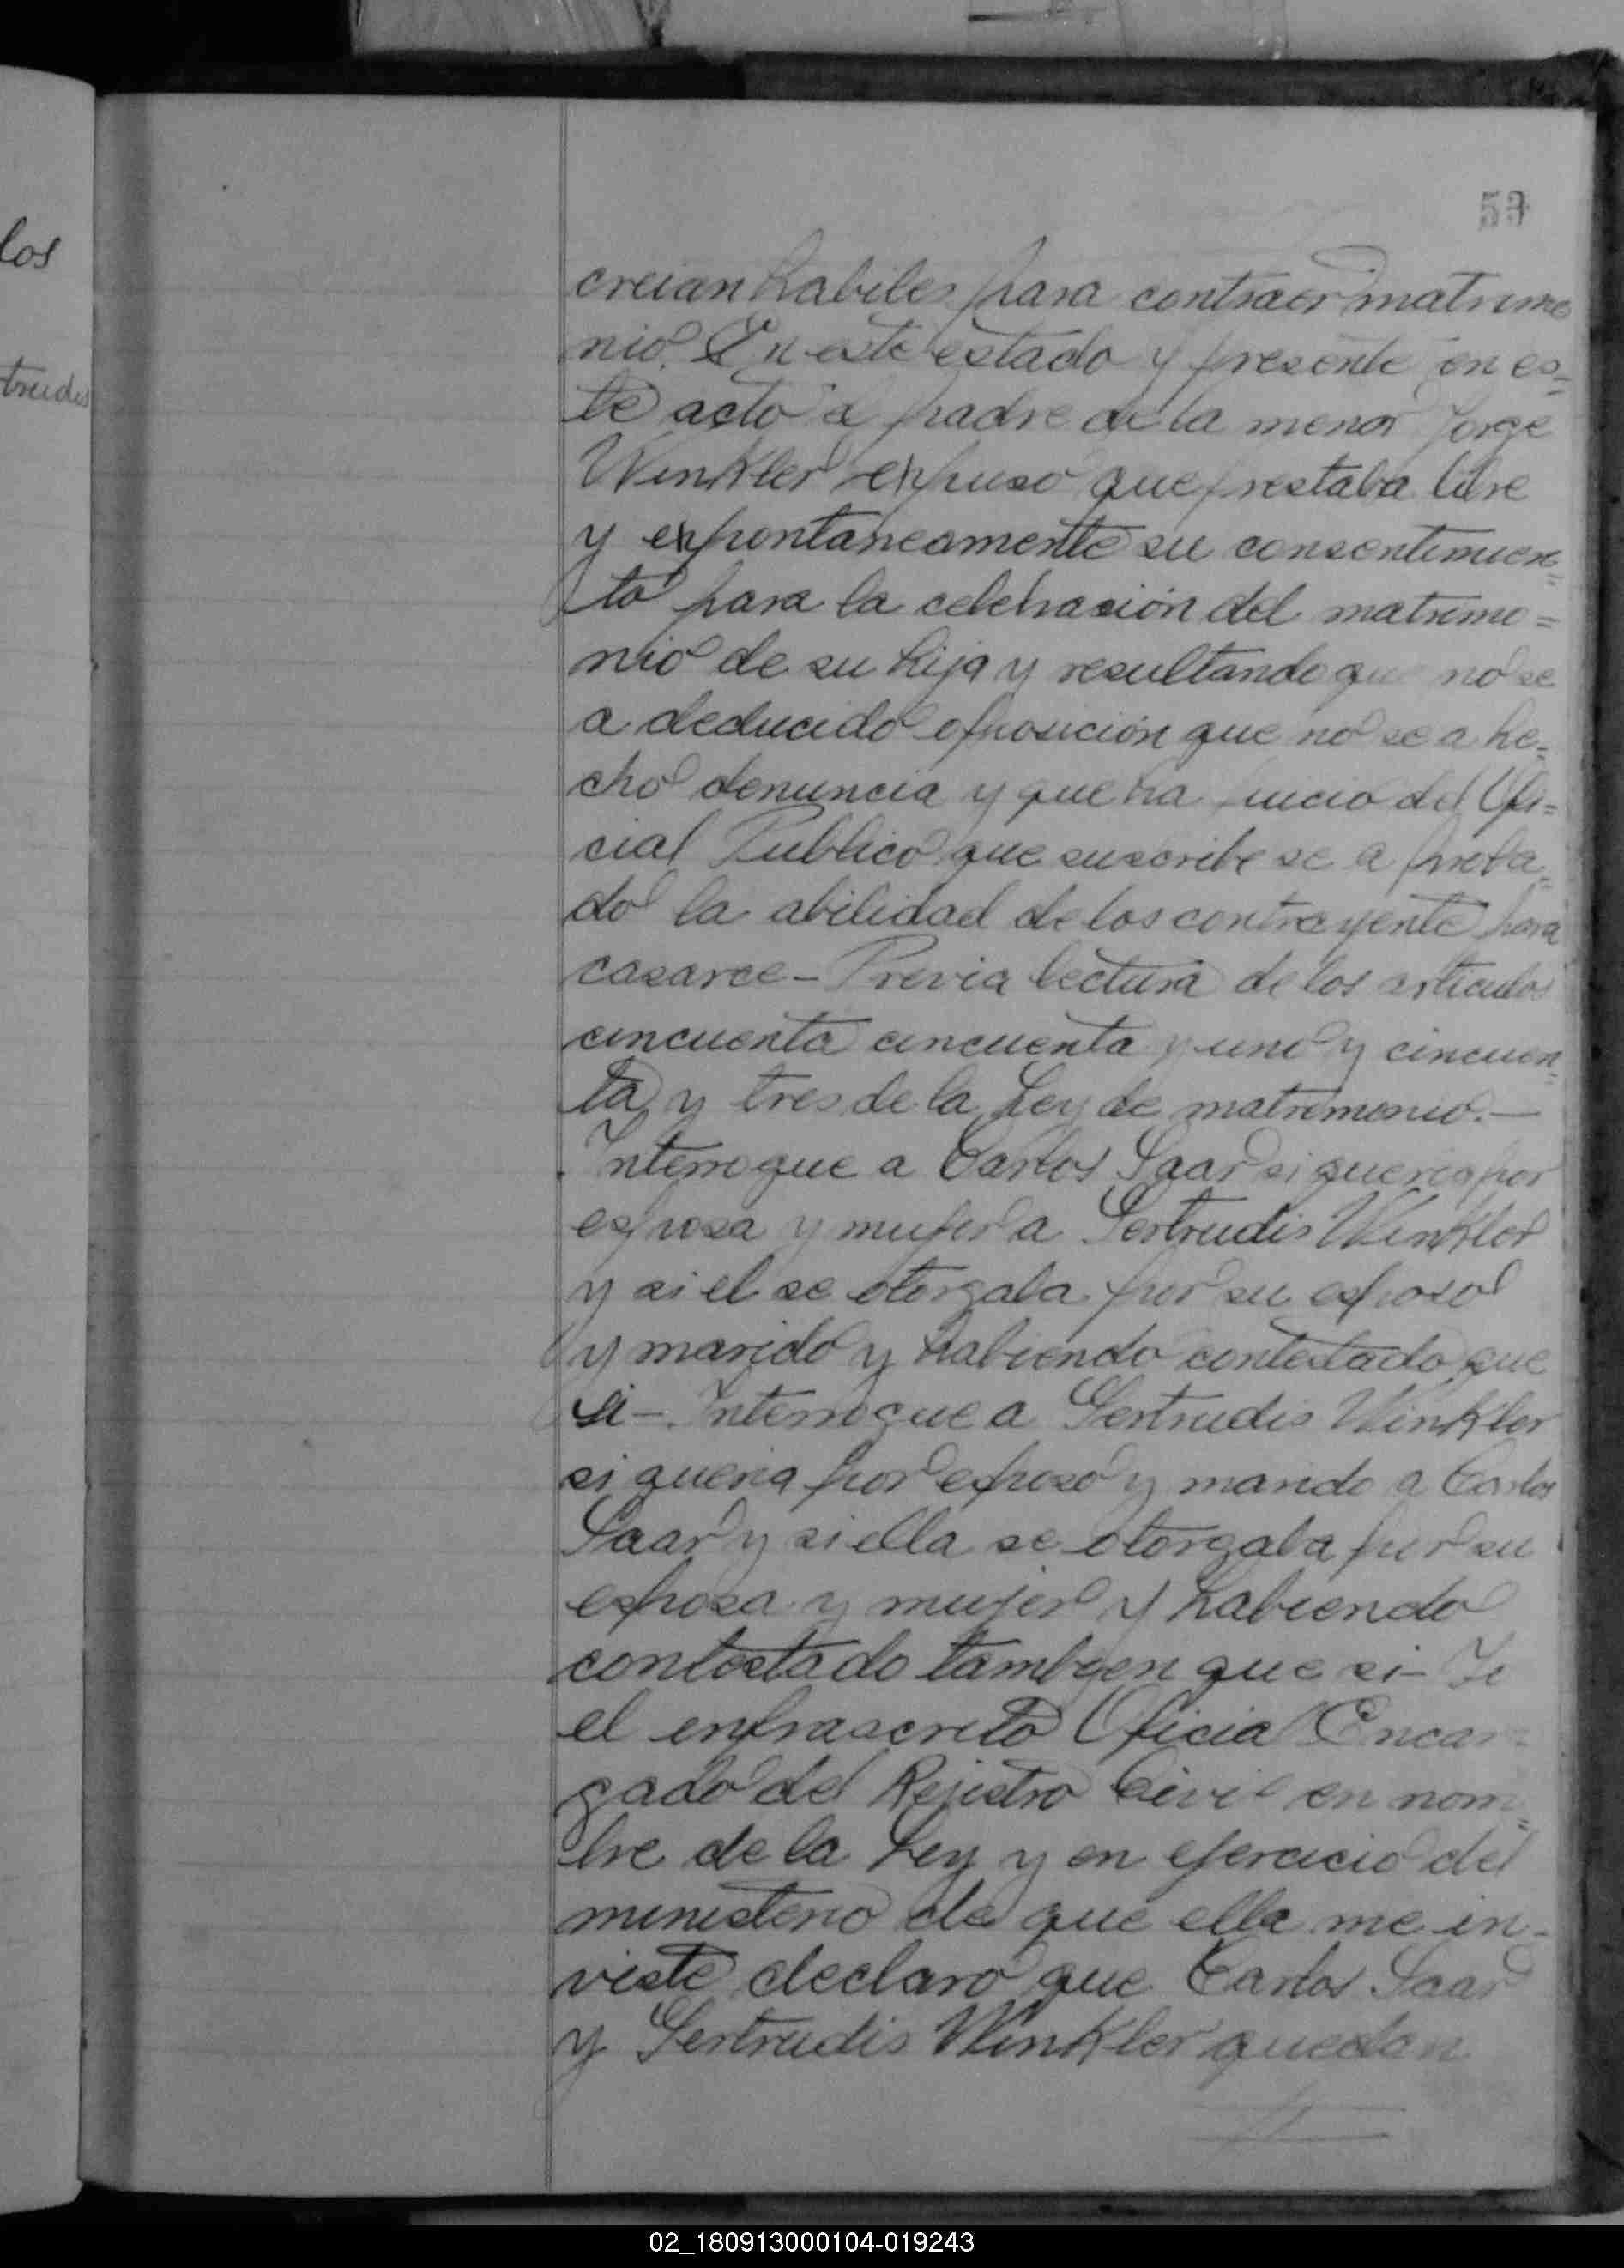 53
los
creian habiles para contraer matrimo
nio. En este estado y presente en es=
te acto el padre de la menor Jorge
Winkler expuso que prestaba libre
y expontaneamente su consentimien=
to para la celebración del matrimo=
nio de su hija y resultando que no se
a deducido oposición que no se a he=
cho denuncia y que ha juicio del Ofi=
cial Publico que suscribe se a proba=
do la abilidad de los contrayente para
casarce - Previa lectura de los articulos
cincuenta cincuenta y uno y cincuen=
ta y tres de la Ley de matrimonio. —
Interrogue a Carlos Saar si queria por
esposa y mujer a Gertrudis Winkler
y si el se otorgaba por su esposo
y marido y habiendo contestado que
si - Interrogue a Gertrudis Winkler
si queria por esposo y marido a Carlos
Saar y si ella se otorgaba por su
esposa y mujer y habiendo
contestado tambien que si - Yo
el enfrascrito Oficial Encar=
gado del Rejistro Civil en nom=
bre de la Ley y en ejercicio del
ministerio de que ella me in-
viste declaro que Carlos Saar
y Gertrudis Winkler quedan
02_180913000104-019243